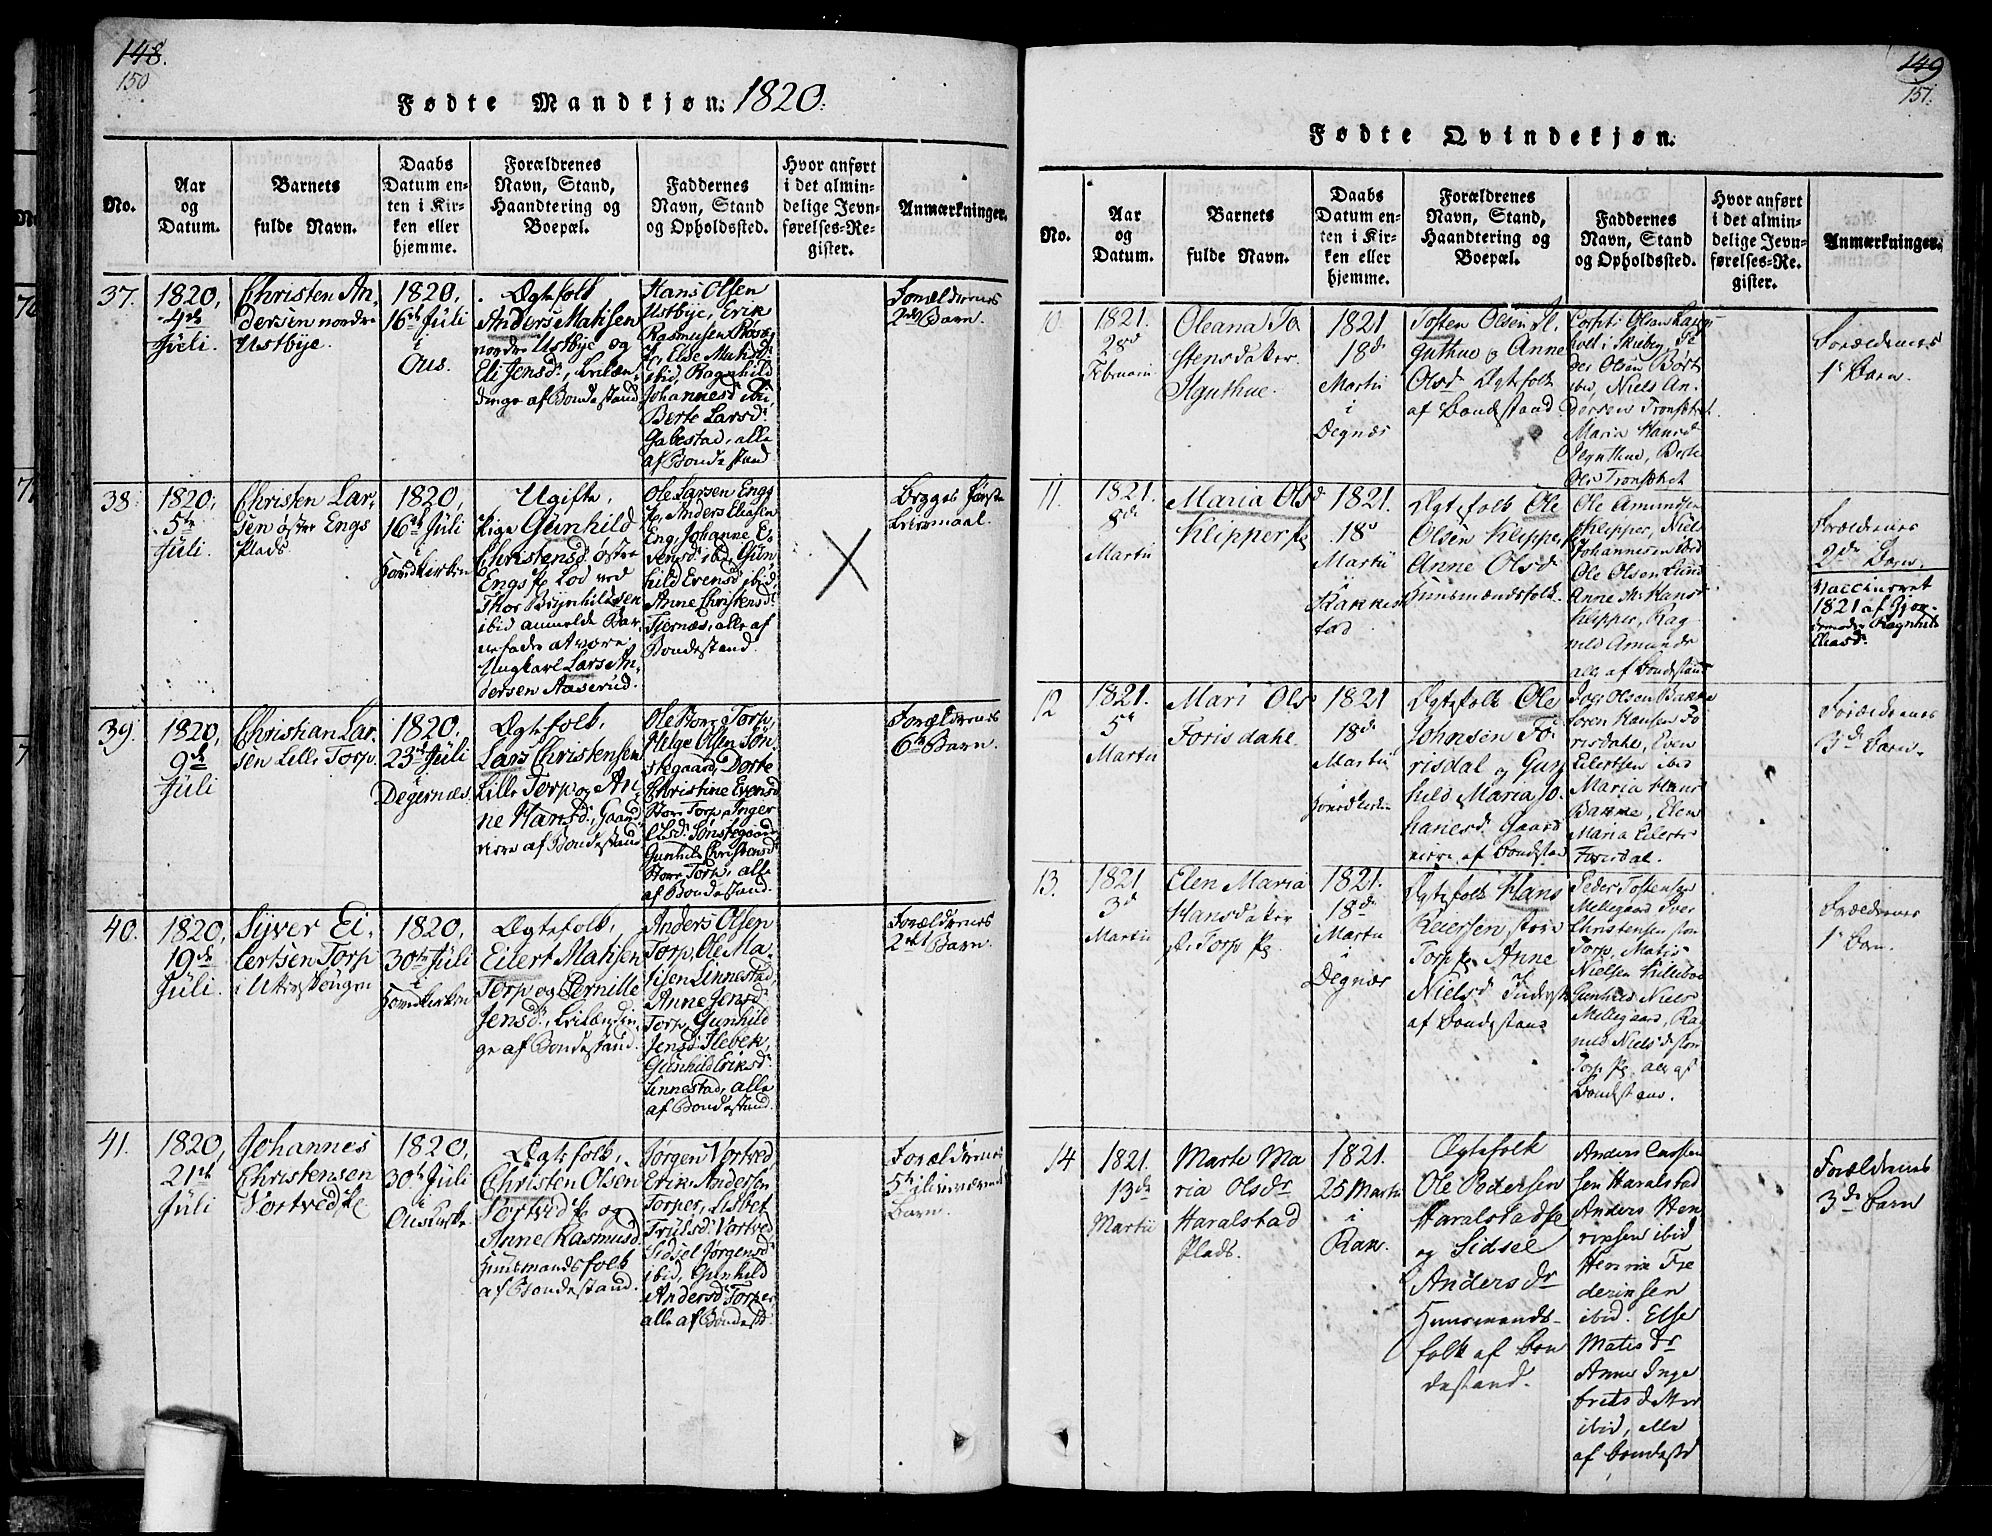 148.
150
Fødte Mandkjøn: 1820.
No.
Aar
og
Datum.
Barnets
fulde Navn.
Daabs
Datum en-
ten i Kir-
ken eller
hjemme.
Forældrenes
Navn, Stand,
Haandtering og
Boepæl.
Faddernes
Navn, Stand
og Opholdssted.
Hvor anført
i det almin-
delige Jevn-
førelses-Re-
gister.
Anmærkninger.
37.
1820,
4de
Juli.
Christen An-
dersen nordre
Ustbye.
1820,
16de Juli
i
Ous.
Ægtefolk
Anders Mathsen
nordre Ustbye og
Eli Jensd.,
af Bondestand
Hans Olsen
Ustbye, Erik
Rasmusen
Else Mathsd.
ibid, Ragnhild
Johannesd. ibid,
Berte Larsd.
Gabestad, alle
af Bondestand
Forældrenes
2det Barn.
38.
1820,
5te
Juli.
Christen Lar-
sen østre Engs
Plads.
1820,
16de Juli
i
Hovedkirken
Ugifte,
Pige Gunhild
Christensd. østre
Engs Pl. Lod ved
Thor Brynhildsen
ibid anmelde Bar-
nefader at være
Ungkarl Lars An-
dersen Aaserud.
Ole Larsen Engs
Pl., Anders Eliasen
Eng, Johanne E-
vensd. ibid, Gun-
hild Evensd. ibid,
Anne Christensd.
Tjernæs, alle af
Bondestand.
Begges første
Leiermaal.
39.
1820,
9de
Juli
Christian Lar-
sen Lille Torp.
1820.
23de Juli
i
Degernæs.
Ægtefolk,
Lars Christensen
Lille Torp og An-
ne Hansd., Gaard-
af Bondestand
Ole Store Torp,
Helge Olsen Søn-
stegaard, Dorte
Christine Evensd.
Store Torp, Inger
Olsd. Sønstegaard,
Gunhild Christensd.
Store Torp, alle
af Bondestand.
Forældrenes
6te Barn.
40.
1820,
19de
Juli
Syver Ei-
lertsen Torp
i Utterskougen
1820,
30te Juli
i
Hovedkirken
Ægtefolk,
Eilert Mathsen
Torp og Pernille
Jensd.,
ge af Bondestand.
Anders Olsen
Torp, Ole Ma-
Linnestad,
Anne Jensd.
Torp, Gunhild
Jensd. Slebek,
Gunhild Eriksd.
Linnestad, alle
af Bondestand.
Forældrenes
2det Barn.
41.
1820,
21de
Juli
Johannes
Christensen
Vortved Pl.
1820,
30te Juli
i
Ous Kirke
Ægtefolk,
Christen Olsen
Vortved Pl. og
Anne Rasmusd.
Huusmandsfolk
af Bondestand.
Jørgen Vortved,
Erik Andersen
Torper, Lisbet
Trulsd. Vortved,
Sidsel Jørgensd.
ibid, Gunhild
Andersd. Torper,
alle af Bondest.
Forældrenes
5te
Barn.
149
151.
Fødte Qvindekjøn.
No.
Aar
og
Datum.
Barnets
fulde Navn.
Daabs
Datum en-
ten i Kir-
ken eller
hjemme.
Forældrenes
Navn, Stand,
Haandtering og
Boepæl.
Faddernes
Navn, Stand
og Opholdssted.
Hvor anført
i det almin-
delige Jevn-
førelses-Re-
gister.
Anmærkninger.
10.
1821.
28de
Februarii
Oleana To
stensdatter
1821
18de
Martii
i
Degnæs
Tosten Olsen
og Anne
Olsd. Ægtefolk
af Bondestand.
Olsen
i Skieby, Pe
der Olsen
ibid, Niels An
dersen Tronsket
Maria Hansd.
Berte
Ols. Tronsket
Forældrenes
1te Barn.
11.
1821.
8de
Martii
Maria Olsd
Klipper Pl
1821.
18de
Martii
i
Rakkes
tad
Ægtefolk Ole
Olsen Klipper Pl
Anne Olsd
Huusmandsfolk.
Ole Amundsen
Klipper, Niels
Johannesen ibid
Ole Olsen Lund
Anne M. Hans
Klipper, Rag
nild Amunds
alle af Bondestand
Forældrenes
2de Barn.
Vaccineret
1821 af Gjor-
demoder Ragnhild
Eliasd.
12
1821.
5te
Martii
Mari Ols
Foris dahl.
1821
18de
Martii
i
Hovedkirken
Ægtefolk Ole
Johnsen Fo
risdal og Gun
hild Maria Jo
hanesd. Gaard
af Bondestand
Olsen Bakke
Soren Hansen Fo
risdahl, Even
Eilertsen ibid
Maria Hans
Bakke, Elen
Maria Eilerts
Forisdal.
Forældrenes
3de Barn.
13.
1821
3de
Martii
Elen Maria
Hansdatter
st. Torp Pl
1821.
18de
Martii
i
Degnæs
Ægtefolk Hans
Reiersen store
Torp Pl Anne
Nielsd.
af Bondestand
Peder Tostensen
Mellegaard Iver
Christensen store
Torp, Matis
Nielsen
Gunhild Niels
Mellegaard, Rag
nild Nielsd store
Torp Pl, alle af
Bondestand.
Forældrenes
1te Barn.
14
1821.
13de
Martii
Marte Ma
ria Olsdr
Haralstad
Plads.
1821.
25 Martii
i
Rak.
Ægtefolk
Ole Pedersen
Haralstad Pl
og Sidsel
Andersdr
Huusmands-
folk af Bon
destand.
Anders Carlsen
Haralstad
Anders Hen
riksen ibid
Henrik Fre
deriksen
ibid. Else
Matisdr
Anne Inge
bretsdatter
ibid, alle
af Bondestd
Forældrenes
3de Barn